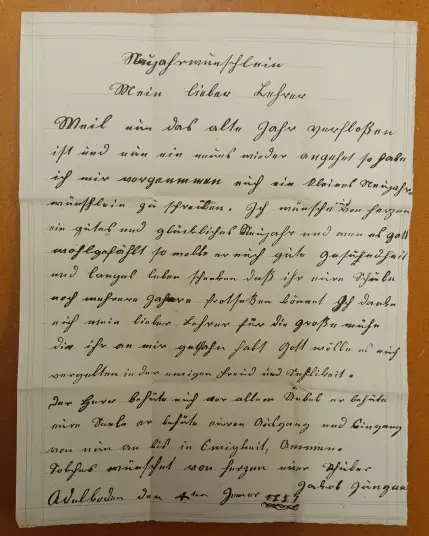 Neujahrwünschlein
Mein lieber Lehrer
Weil nun das alte Jahr verfloßen
ist und nun ein neues wieder angeht so habe
ich mir vorgenmmen euch ein kleines Neujahr-
wünschlein zu schreiben. Ich wünsche von herzen
ein gutes und glückliches Neujahr und wen es gott
wohlgefählt so wolle er euch gute gesundheit
und langes leben schenken daß ihr eure Schule
noch mehrere Jahre fortsetzen könnet Ich danke
euch mein lieber Lehrer für die große mühe
die ihr an mir gethan habt Gott wolle es euch
vergelten in der ewigen freud und Sehligkeit.
Der Herr behüte euch vor allem Uebel er behüte
eure Seele er behüte euren Ausgang und Eingang
von nun an bis in Ewigkeit, Ammen.
Solches wünschet von herzen euer Schüler
Jakob
Adelboden den 4ten Jenner